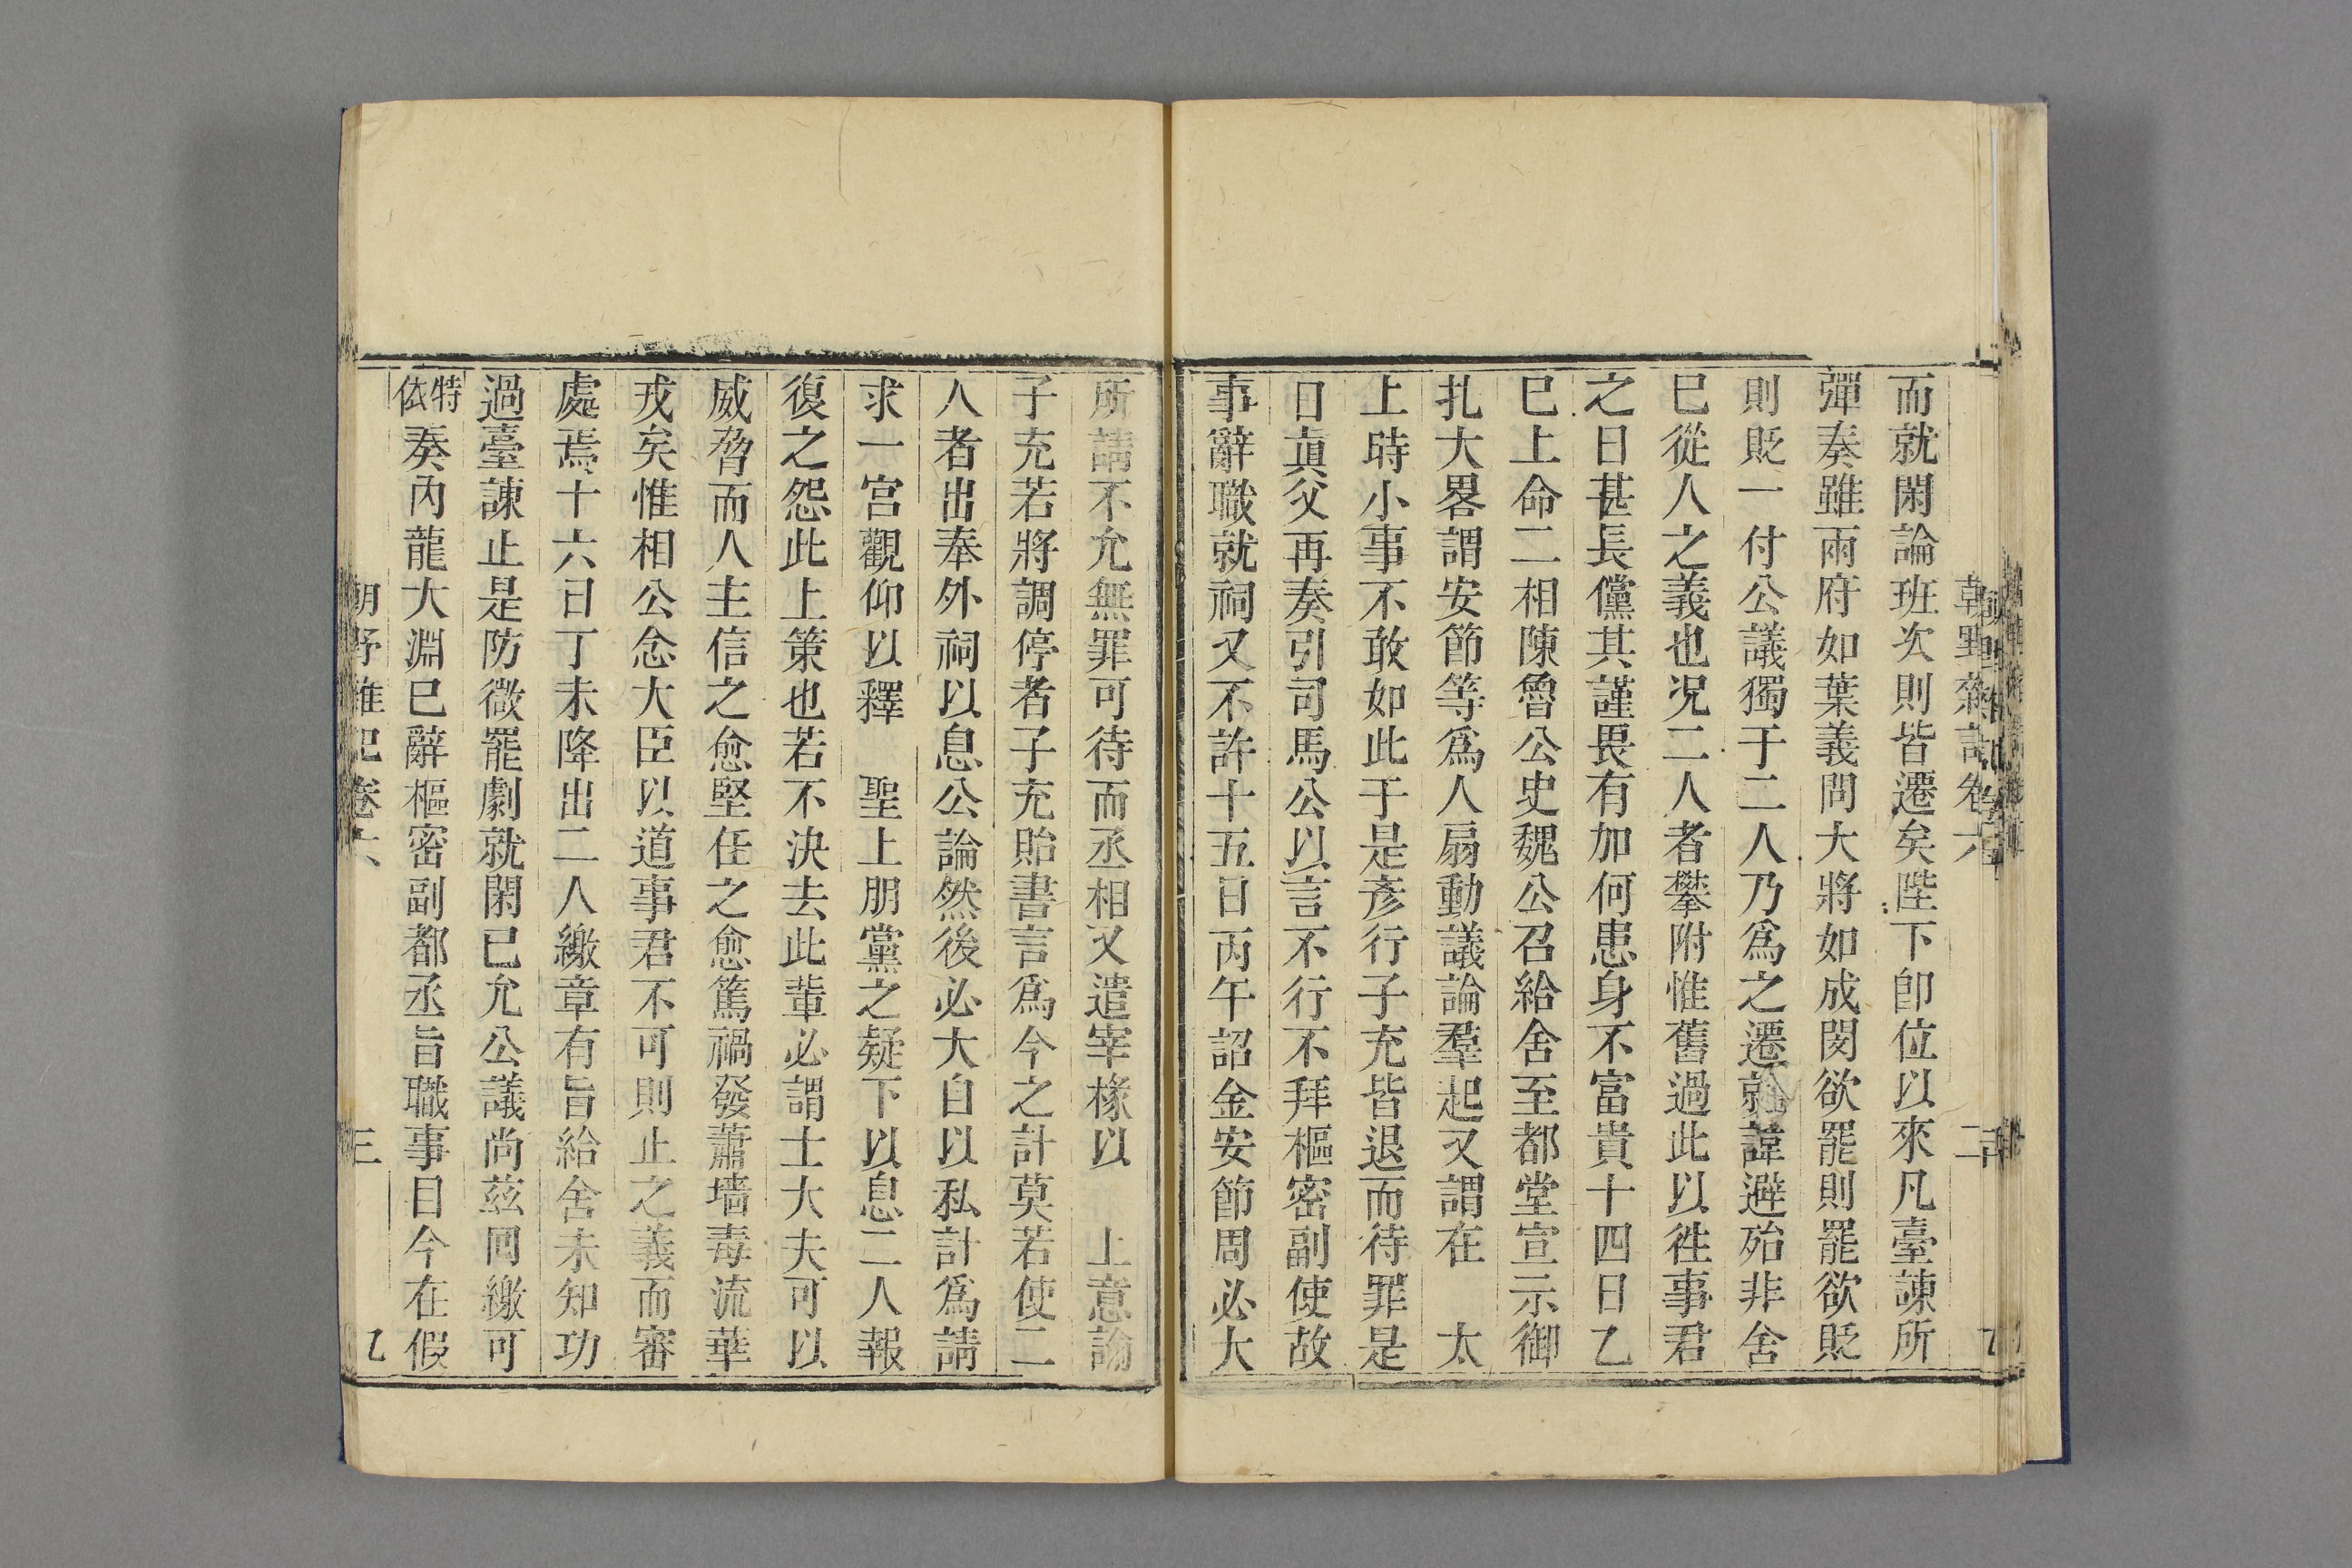 朝野雜記卷六 二 乙
而就閑論班次則皆遷矣陛下卽位以來凡臺諫所
彈奏雖兩府如葉義問大將如成閔欲罷則罷欲貶
則貶一付公議獨于二人乃爲之遷就諱避殆非舍
巳從人之義也况二人者攀附惟舊過此以徃事君
之日甚長儻其謹畏有加何患身不富貴十四日乙
巳上命二相陳魯公史魏公召給舍至都堂宣示御
扎大畧謂安節等爲人扇動議論羣起又謂在 太
上時小事不敢如此于是彥行子充皆退而待罪是
日眞父再奏引司馬公以言不行不拜樞密副使故
事辭職就祠又不許十五日丙午詔金安節周必大
所請不允無罪可待而丞相又遣宰椽以 上意諭
子充若將調停者子充貽書言爲今之計莫若使二
人者出奉外祠以息公論然後必大自以私計爲請
求一宮觀仰以釋 聖上朋黨之疑下以息二人報
復之怨此上策也若不決去此輩必謂士大夫可以
威脅而人主信之愈堅任之愈篤禍發蕭墻毒流華
戎矣惟相公念大臣以道事君不可則止之義而審
處焉十六日丁未降出二人繳章有旨給舍未知功
過臺諫止是防微罷劇就閑已允公議尚茲回繳可
特依奏內龍大淵巳辭樞密副都丞旨職事目今在假
朝野雜記卷六 三 乙